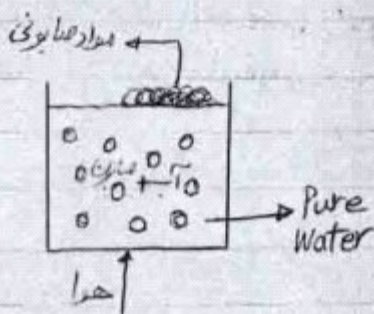 مواد صابونی
آب + صابون
Pure
Water
هوا